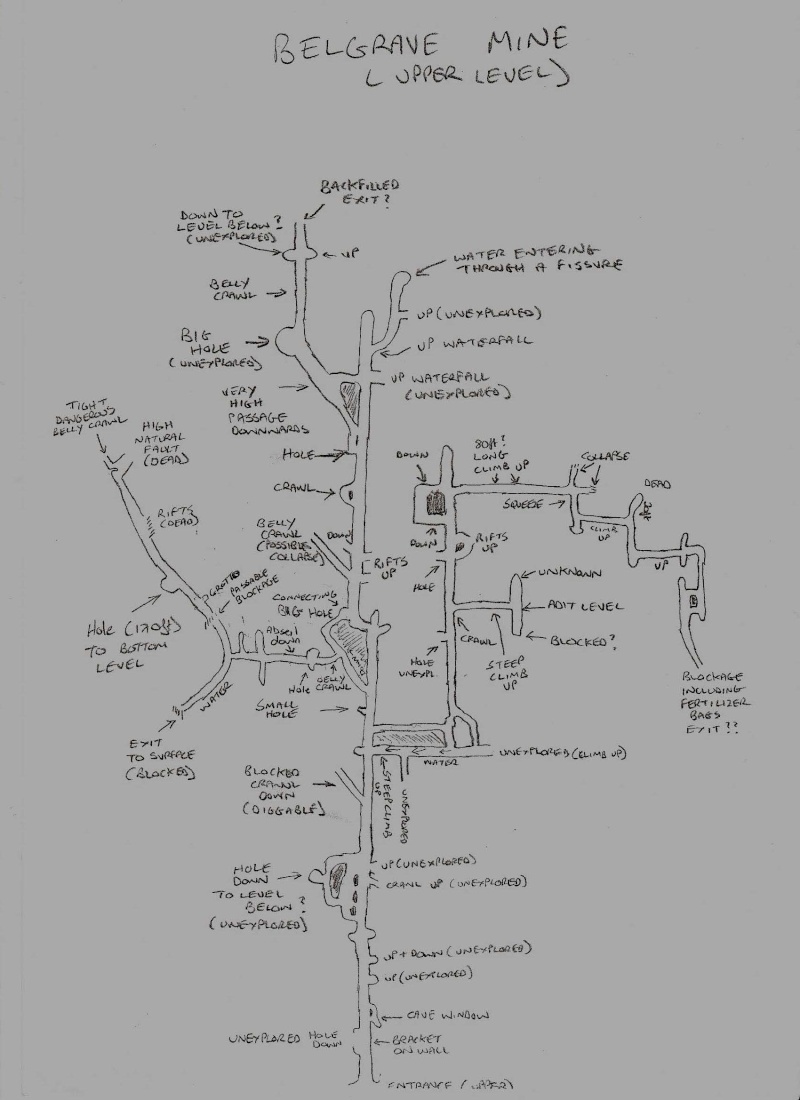 BELGRAVE MINE
(UPPER LEVEL)
BACKFILLED
EXIT?
DOWN TO
LEVEL BELOW?
(UNEXPLORED)
UP
WATER ENTERING
THROUGH A FISSURE
BELLY
CRAWL
UP (UNEXPLORED)
BIG
HOLE
(UNEXPLORED)
UP WATERFALL
UP WATERFALL
(UNEXPLORED)
VERY
HIGH
PASSAGE
DOWNWARDS
TIGHT
DANGEROUS
BELLY CRAWL
HIGH
NATURAL
FAULT
(DEAD)
HOLE
DOWN
30ft?
LONG
CLIMB UP
COLLAPSE
CRAWL
SQUEEZE
DEAD
RIFTS
(DEAD)
BELLY
CRAWL
(POSSIBLE
COLLAPSE)
DOWN
DOWN
RIFTS
UP
CLIMB
UP
UP
RIFTS
UP
HOLE
UNKNOWN
GROTTO
PASSABLE
BLOCKAGE
CONNECTING
BIG HOLE
ADIT LEVEL
Hole (170ft)
TO BOTTOM
LEVEL
Abseil
down
CRAWL
BLOCKED?
HOLE
UNEXPL.
STEEP
CLIMB
UP
Hole
BELLY
CRAWL
WATER
SMALL
HOLE
BLOCKAGE
INCLUDING
FERTILIZER
BAGS
EXIT??
EXIT
TO SURFACE
(BLOCKED)
UNEXPLORED (CLIMB UP)
WATER
BLOCKED
CRAWL
DOWN
(DIGGABLE)
STEEP CLIMB
UP
UNEXPLORED
HOLE
DOWN
TO LEVEL
BELOW?
(UNEXPLORED)
UP (UNEXPLORED)
CRAWL UP (UNEXPLORED)
UP + DOWN (UNEXPLORED)
UP (UNEXPLORED)
CAVE WINDOW
UNEXPLORED HOLE
DOWN
BRACKET
ON WALL
ENTRANCE (UPPER)